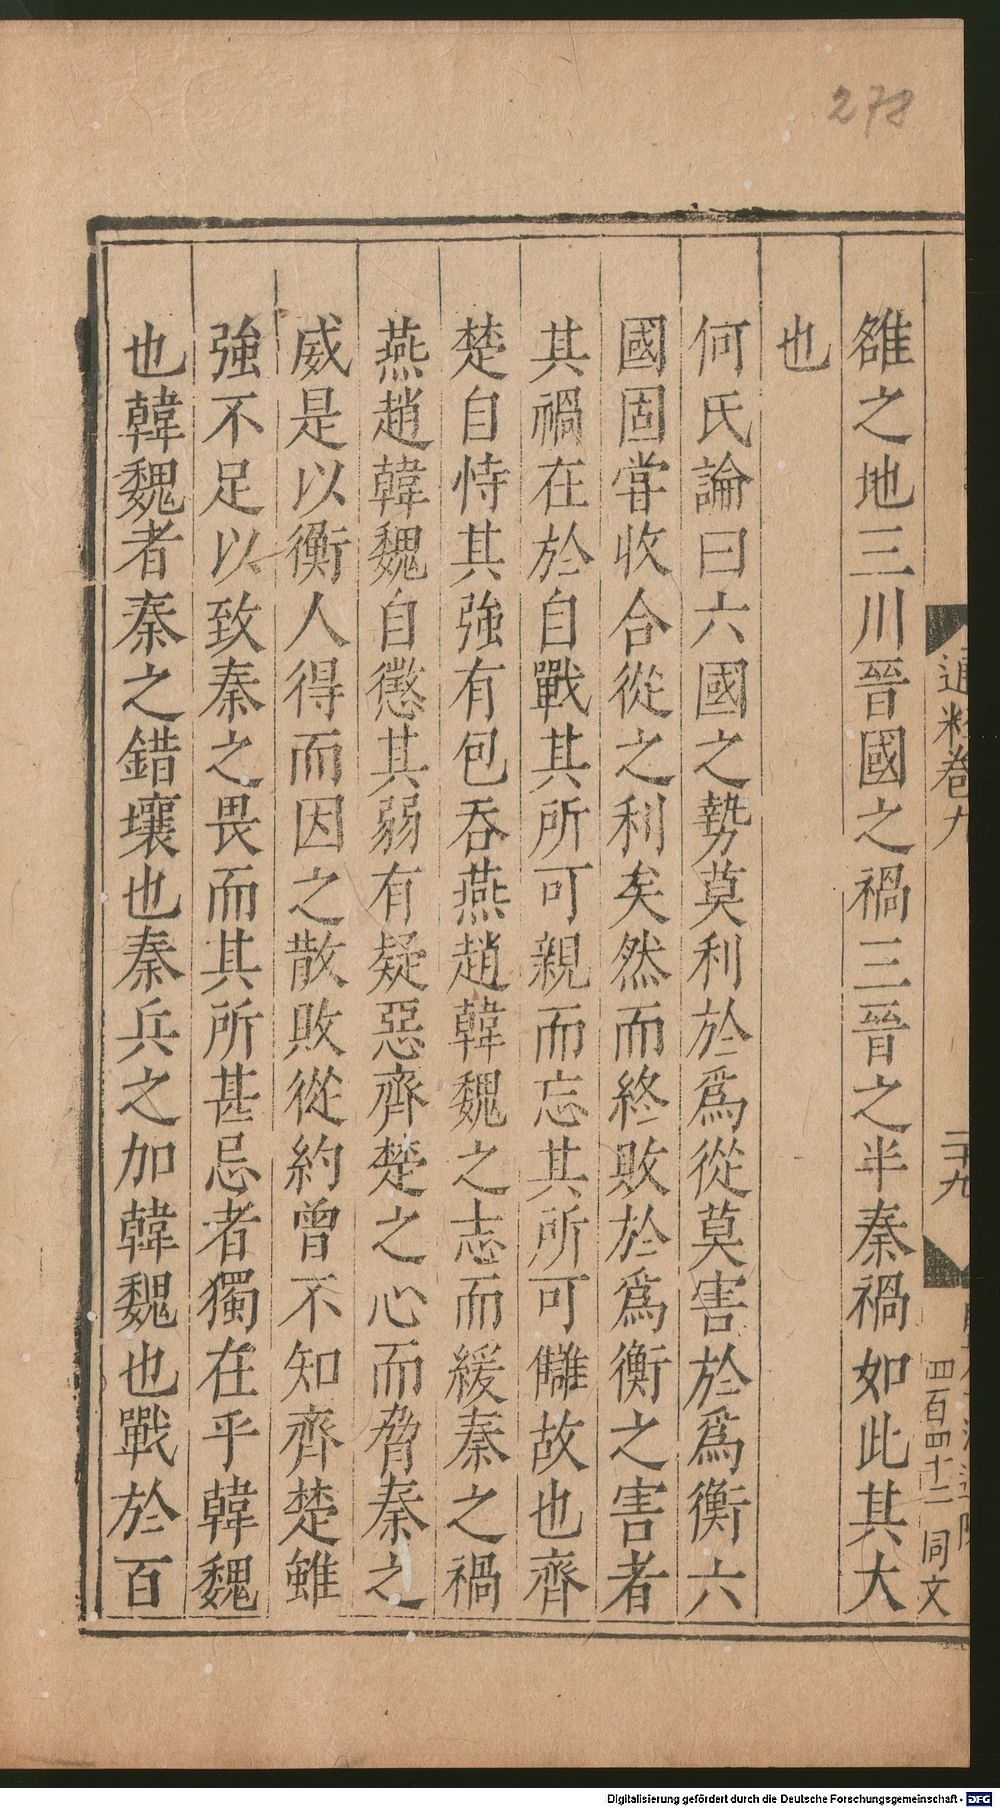 278
雒之地三川晉國之禍三晉之半秦禍如此其大
也
何氏論曰六國之勢莫利於爲從莫害於爲衡六
國固嘗收合從之利矣然而終敗於爲衡之害者
其禍在於自戰其所可親而忘其所可讎故也齊
楚自恃其強有包吞燕趙韓魏之志而緩秦之禍
燕趙韓魏自懲其弱有疑惡齊楚之心而脅秦之
威是以衡人得而因之散敗從約曾不知齊楚雖
強不足以致秦之畏而其所甚忌者獨在乎韓魏
也韓魏者秦之錯壤也秦兵之加韓魏也戰於百
卷九
二十九
四百四十二
同文
Digitalisierung gefördert durch die Deutsche Forschungsgemeinschaft - DFG